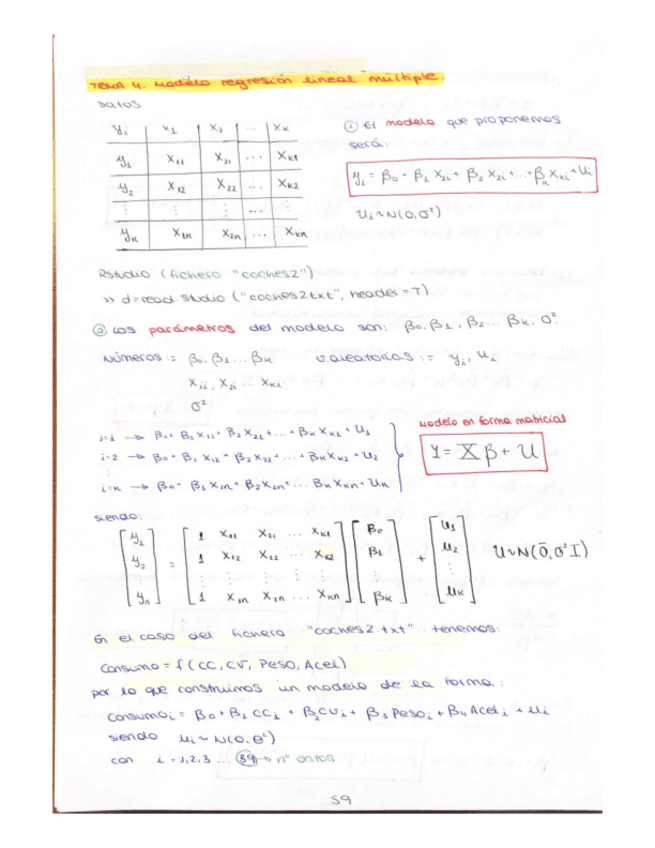 TEMA 4. Modelo regresión lineal múltiple.
Datos
yi x1 x2 ... xk
y1 x11 x21 ... xk1
y2 x12 x22 ... xk2
⋮ ⋮ ⋮ ... ⋮
yn x1n x2n ... xkn
① El modelo que proponemos
será:
yi = β0 + β1 x1i + β2 x2i + ... + βk xki + ui
ui ~ N(0, σ²)
Rstudio (fichero "coches2")
>> d=read.studio ("coches2.txt", header=T)
② Los parámetros del modelo son: β0, β1, β2 ... βk, σ².
Números := β0, β1 ... βk v.aleatorias := yi, ui
x1i, x2i ... xki
σ²
i=1 → β0 + β1 x11 + β2 x21 + ... + βk xk1 + u1
i=2 → β0 + β1 x12 + β2 x22 + ... + βk xk2 + u2
⋮
i=n → β0 + β1 x1n + β2 x2n + ... βk xkn + un
Modelo en forma matricial
Y = X β + U
siendo:
y1 1 x11 x21 xk1 β0 u1
y2 = 1 x12 x22 xk2 β1 + u2 U ~ N(0, σ² I)
⋮ ⋮ ⋮ ⋮ ⋮ ⋮ ⋮
yn 1 x1n x2n ... xkn βk uk
En el caso del fichero "coches2.txt" tenemos:
Consumo = f (CC, CV, Peso, Acel)
por lo que construimos un modelo de la forma:
Consumoi = β0 + β1 CCi + β2 CVi + β3 Pesoi + β4 Aceli + ui
siendo ui ~ N(0, σ²)
con i = 1, 2, 3 ... 39 → nº datos
59